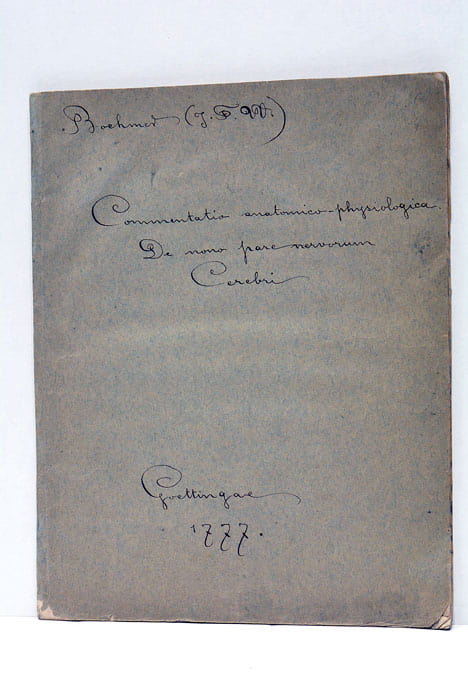 Boehmer (J. F. W.)
Commentatio anatomico-physiologica.
De nono pare nervorum
Cerebri
Goettingae
1777.